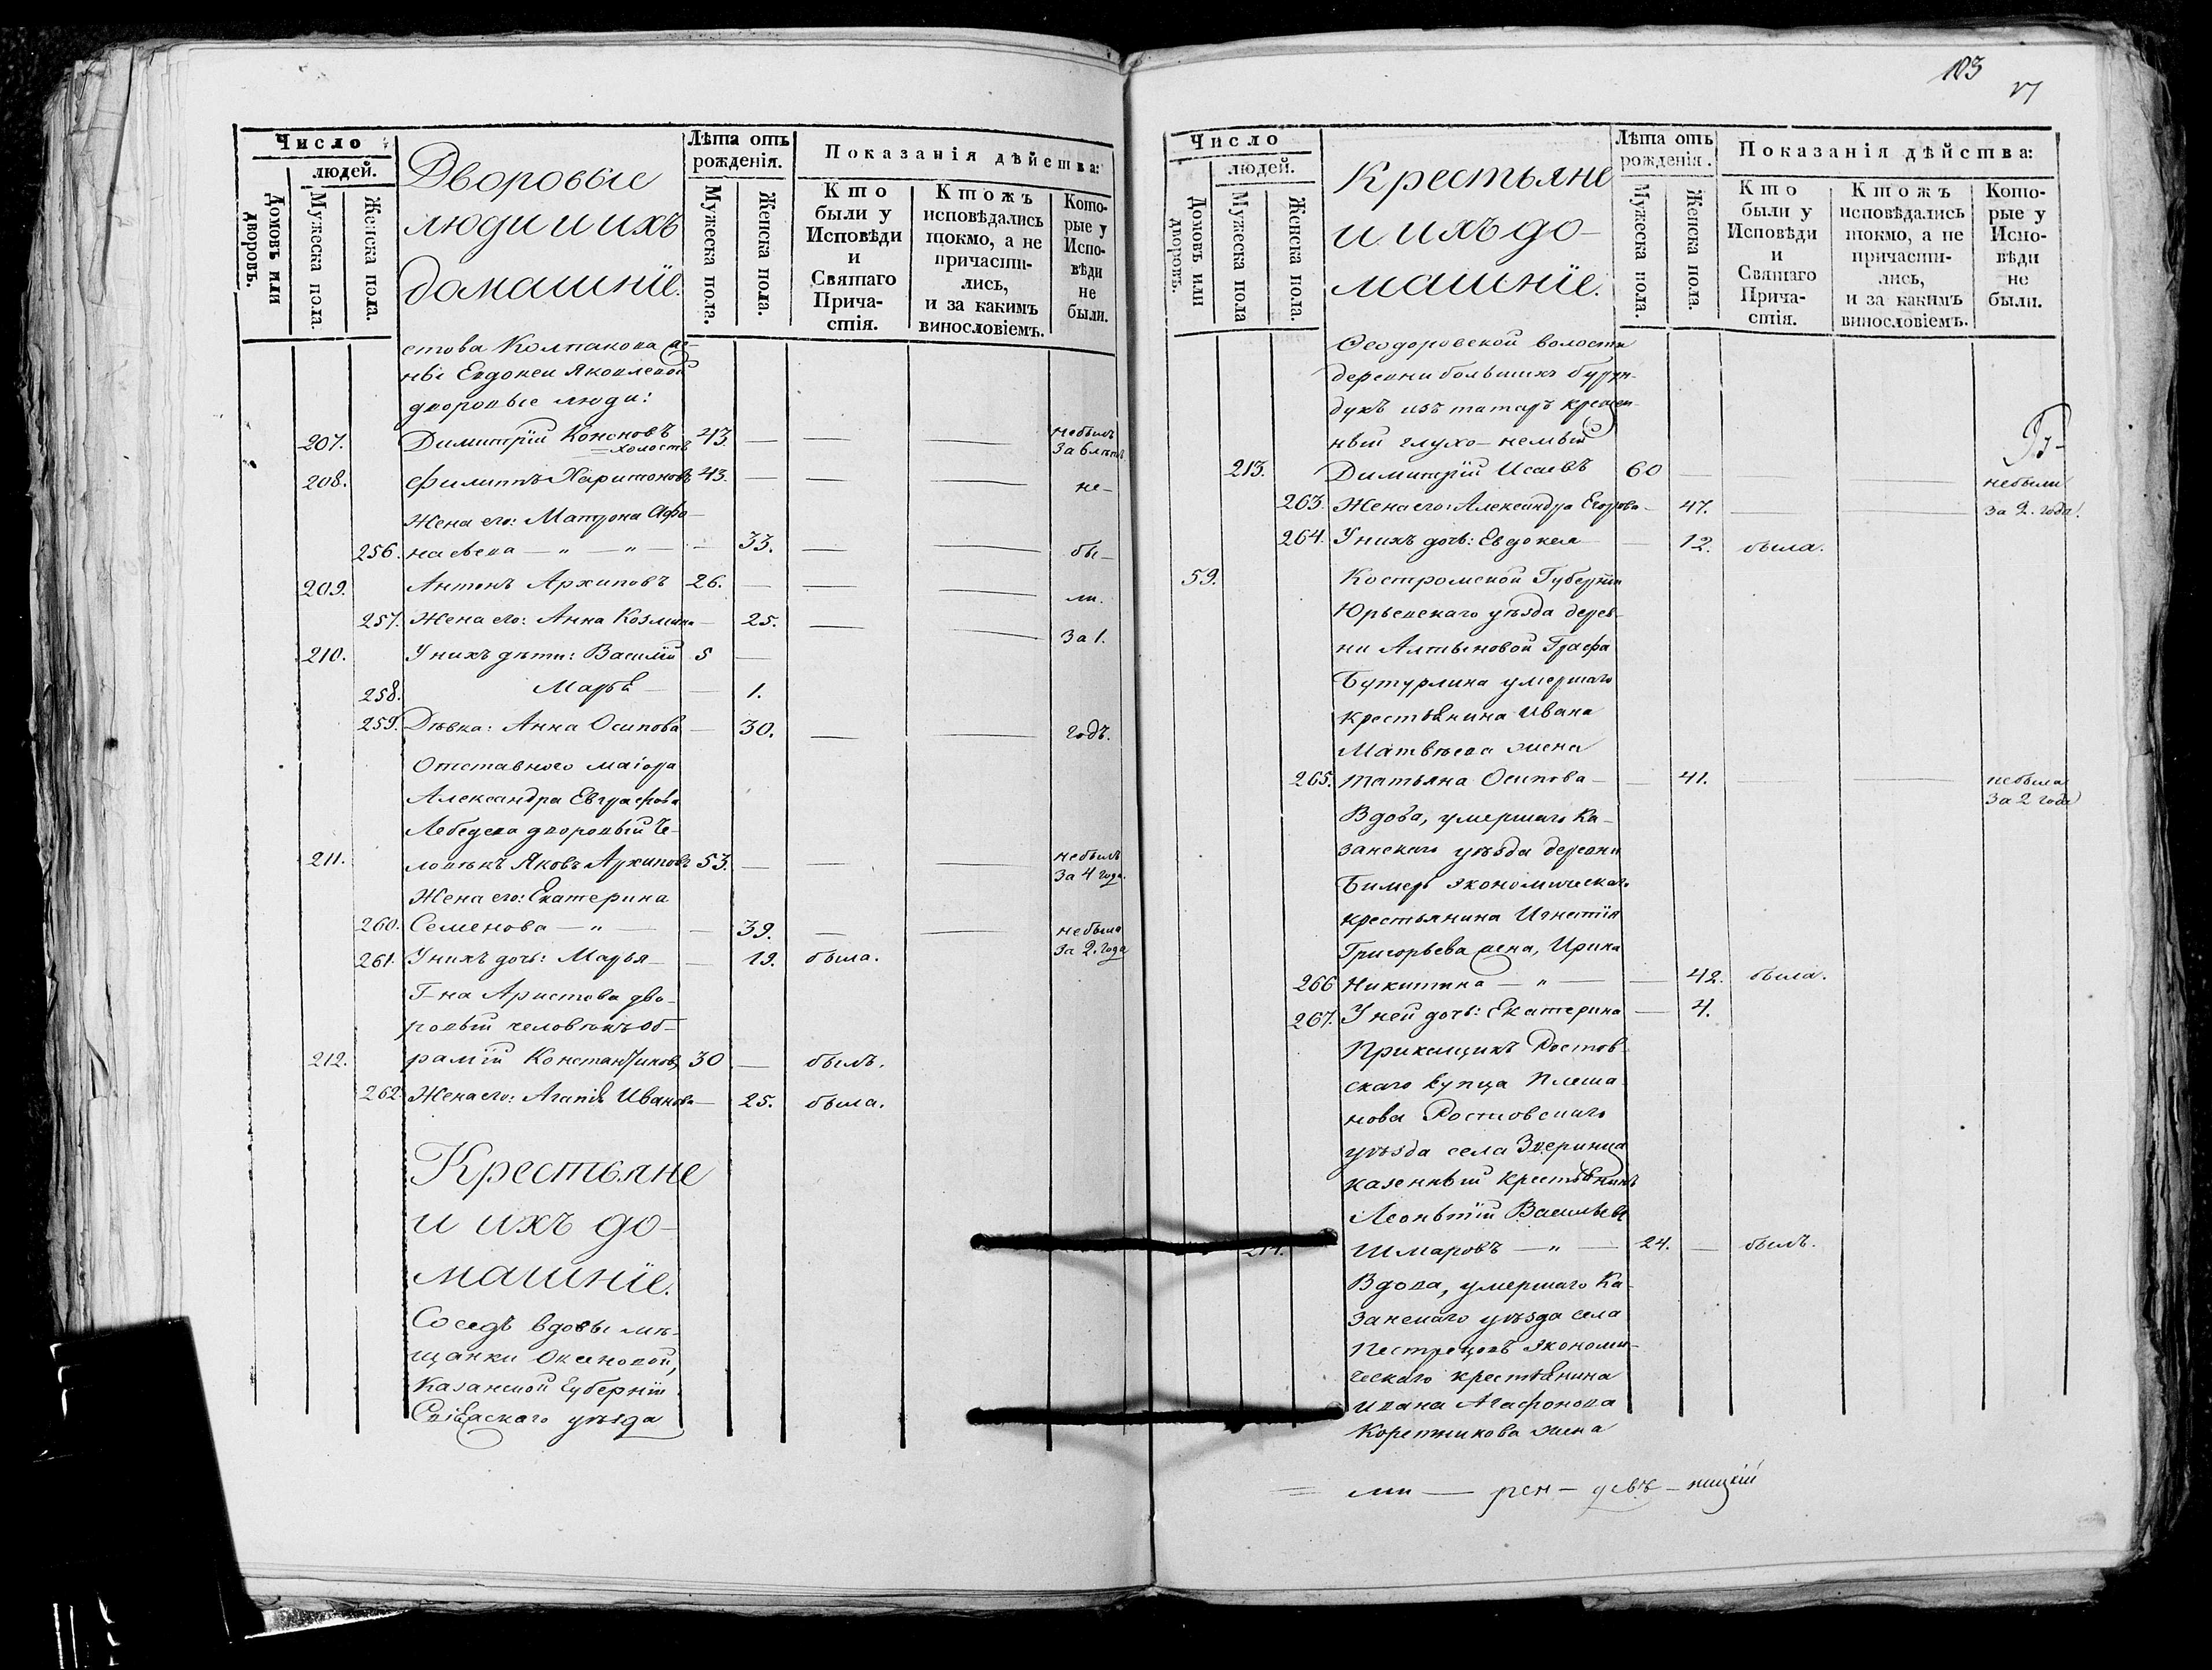 Число
людей.
Домовъ или дворовъ.
Мужеска пола.
Женска пола.
Дворовые
люди и ихъ
домашнїе.
Лѣта отъ
рожденія.
Мужеска пола.
Женска пола.
Показанія дѣйства:
Кто
были у
Исповѣди
и
Святаго
Прича-
стія.
Ктожъ
исповѣдались
токмо, а не
причасти-
лись,
и за какимъ
винословіемъ.
Кото-
рые у
Испо-
вѣди
не
были.
стова Колпакова
ны Евдокеи Яковлевой
дворовые люди:
207. Димитрїй Кононовъ 43. — — — небылъ
= холостъ за 6 лѣтъ
208. Филиппъ Харитоновъ 43. — — — не-
Жена его: Матрона Афо-
256. насьева — „ — „ — — 33. — — бы-
209. Антонъ Архиповъ 26. — — — ли.
257. Жена его: Анна Козмина — 25. — — за 1.
210. У нихъ дѣти: Василїй 5 —
258. Марья — — 1.
259. Дѣвка: Анна Осипова — 30. — — годъ.
Отставного маіора
Александра Евграфова
Лебедева дворовый че-
211. ловѣкъ Яковъ Архиповъ 53. — — — небылъ
за 4 года.
Жена его: Екатерина
260. Семенова — „ — — 39. — — небыла
за 2. года
261. У нихъ дочь: Марья — — 19. была.
Г-на Аристова дво-
ровый человѣкъ Об-
212. рамїй Константиновъ 30 — былъ.
262. Жена его: Агапія Иванова — 25. была.
Крестьяне
и ихъ до-
машнїе.
Соседъ вдовы мѣ-
щанки Оксеновой,
Казанской Губернїи
Свіяскаго уѣзда
103
Число
людей.
Домовъ или дворовъ.
Мужеска пола
Женска пола.
Крестьяне
и ихъ до-
машнїе.
Лѣта отъ
рожденія.
Мужеска пола.
Женска пола.
Показанія дѣйства:
Кто
были у
Исповѣди
и
Святаго
Прича-
стія.
Ктожъ
исповѣдались
токмо, а не
причасти-
лись,
и за какимъ
винословіемъ.
Кото-
рые у
Испо-
вѣди
не
были.
Ѳеодоровской волости
деревни большихъ бурун-
дукъ изъ татаръ крещен-
ный глухо-немый
213. Димитрїй Исаевъ 60 — — небыли
263. Жена его: Александра Егорова — 47. — — за 2. года.
264. У нихъ дочь: Евдокея — — 12. была.
59. Костромской Губернїи
Юрьевскаго уѣзда дерев-
ни Алтыновой Графа
Бутурлина умершаго
крестьянина Ивана
Матвѣева жена
265. Татьяна Осипова — — 41. — — небыла
за 2 года
Вдова, умершаго Ка-
занскаго уѣзда деревни
Бимеръ экономическаго
крестьянина Игнатїя
Григорьева жена, Ирина
266 Никитина — „ — — 42. была.
267. У ней дочь: Екатерина — 4.
Прикащикъ Ростов-
скаго купца Плеша-
нова Ростовскаго
уѣзда села Зверинца
казенный крестьянинъ
Леонътїй Васильевъ
214. Шмаровъ — „ — 24. — былъ.
Вдова, умершаго Ка-
занскаго уѣзда села
Пестрецовъ экономи-
ческаго крестьянина
Ивана Агафонова
Коретникова жена
= ми — рен — — ницкій